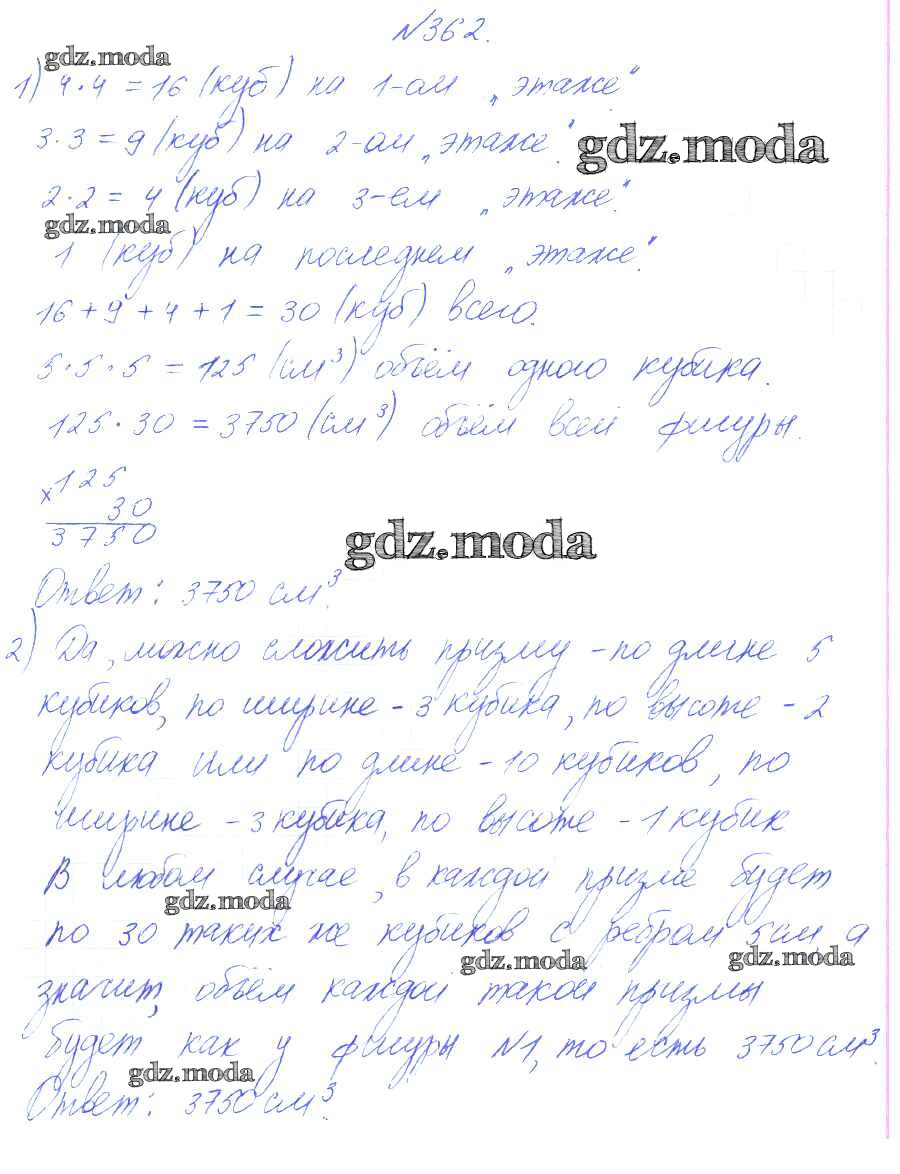 №362.
gdz.moda
1) 4·4 = 16 (куб) на 1-ом „этаже“
3·3 = 9 (куб) на 2-ом „этаже“.
gdz.moda
2·2 = 4 (куб) на 3-ем „этаже“.
gdz.moda
1 (куб) на последнем „этаже“.
16 + 9 + 4 + 1 = 30 (куб) всего.
5·5·5 = 125 (см³) объём одного кубика.
125·30 = 3750 (см³) объём всей фигуры.
×125
30
3750
gdz.moda
Ответ: 3750 см³.
2) Да, можно сложить призму - по длине 5
кубиков, по ширине - 3 кубика, по высоте - 2
кубика или по длине - 10 кубиков, по
ширине - 3 кубика, по высоте - 1 кубик
В любом случае, в каждой призме будет
gdz.moda
по 30 таких же кубиков с ребром 5см, а
gdz.moda
gdz.moda
значит, объём каждой такой призмы
будет как у фигуры №1, то есть 3750 см³.
gdz.moda
Ответ: 3750 см³.